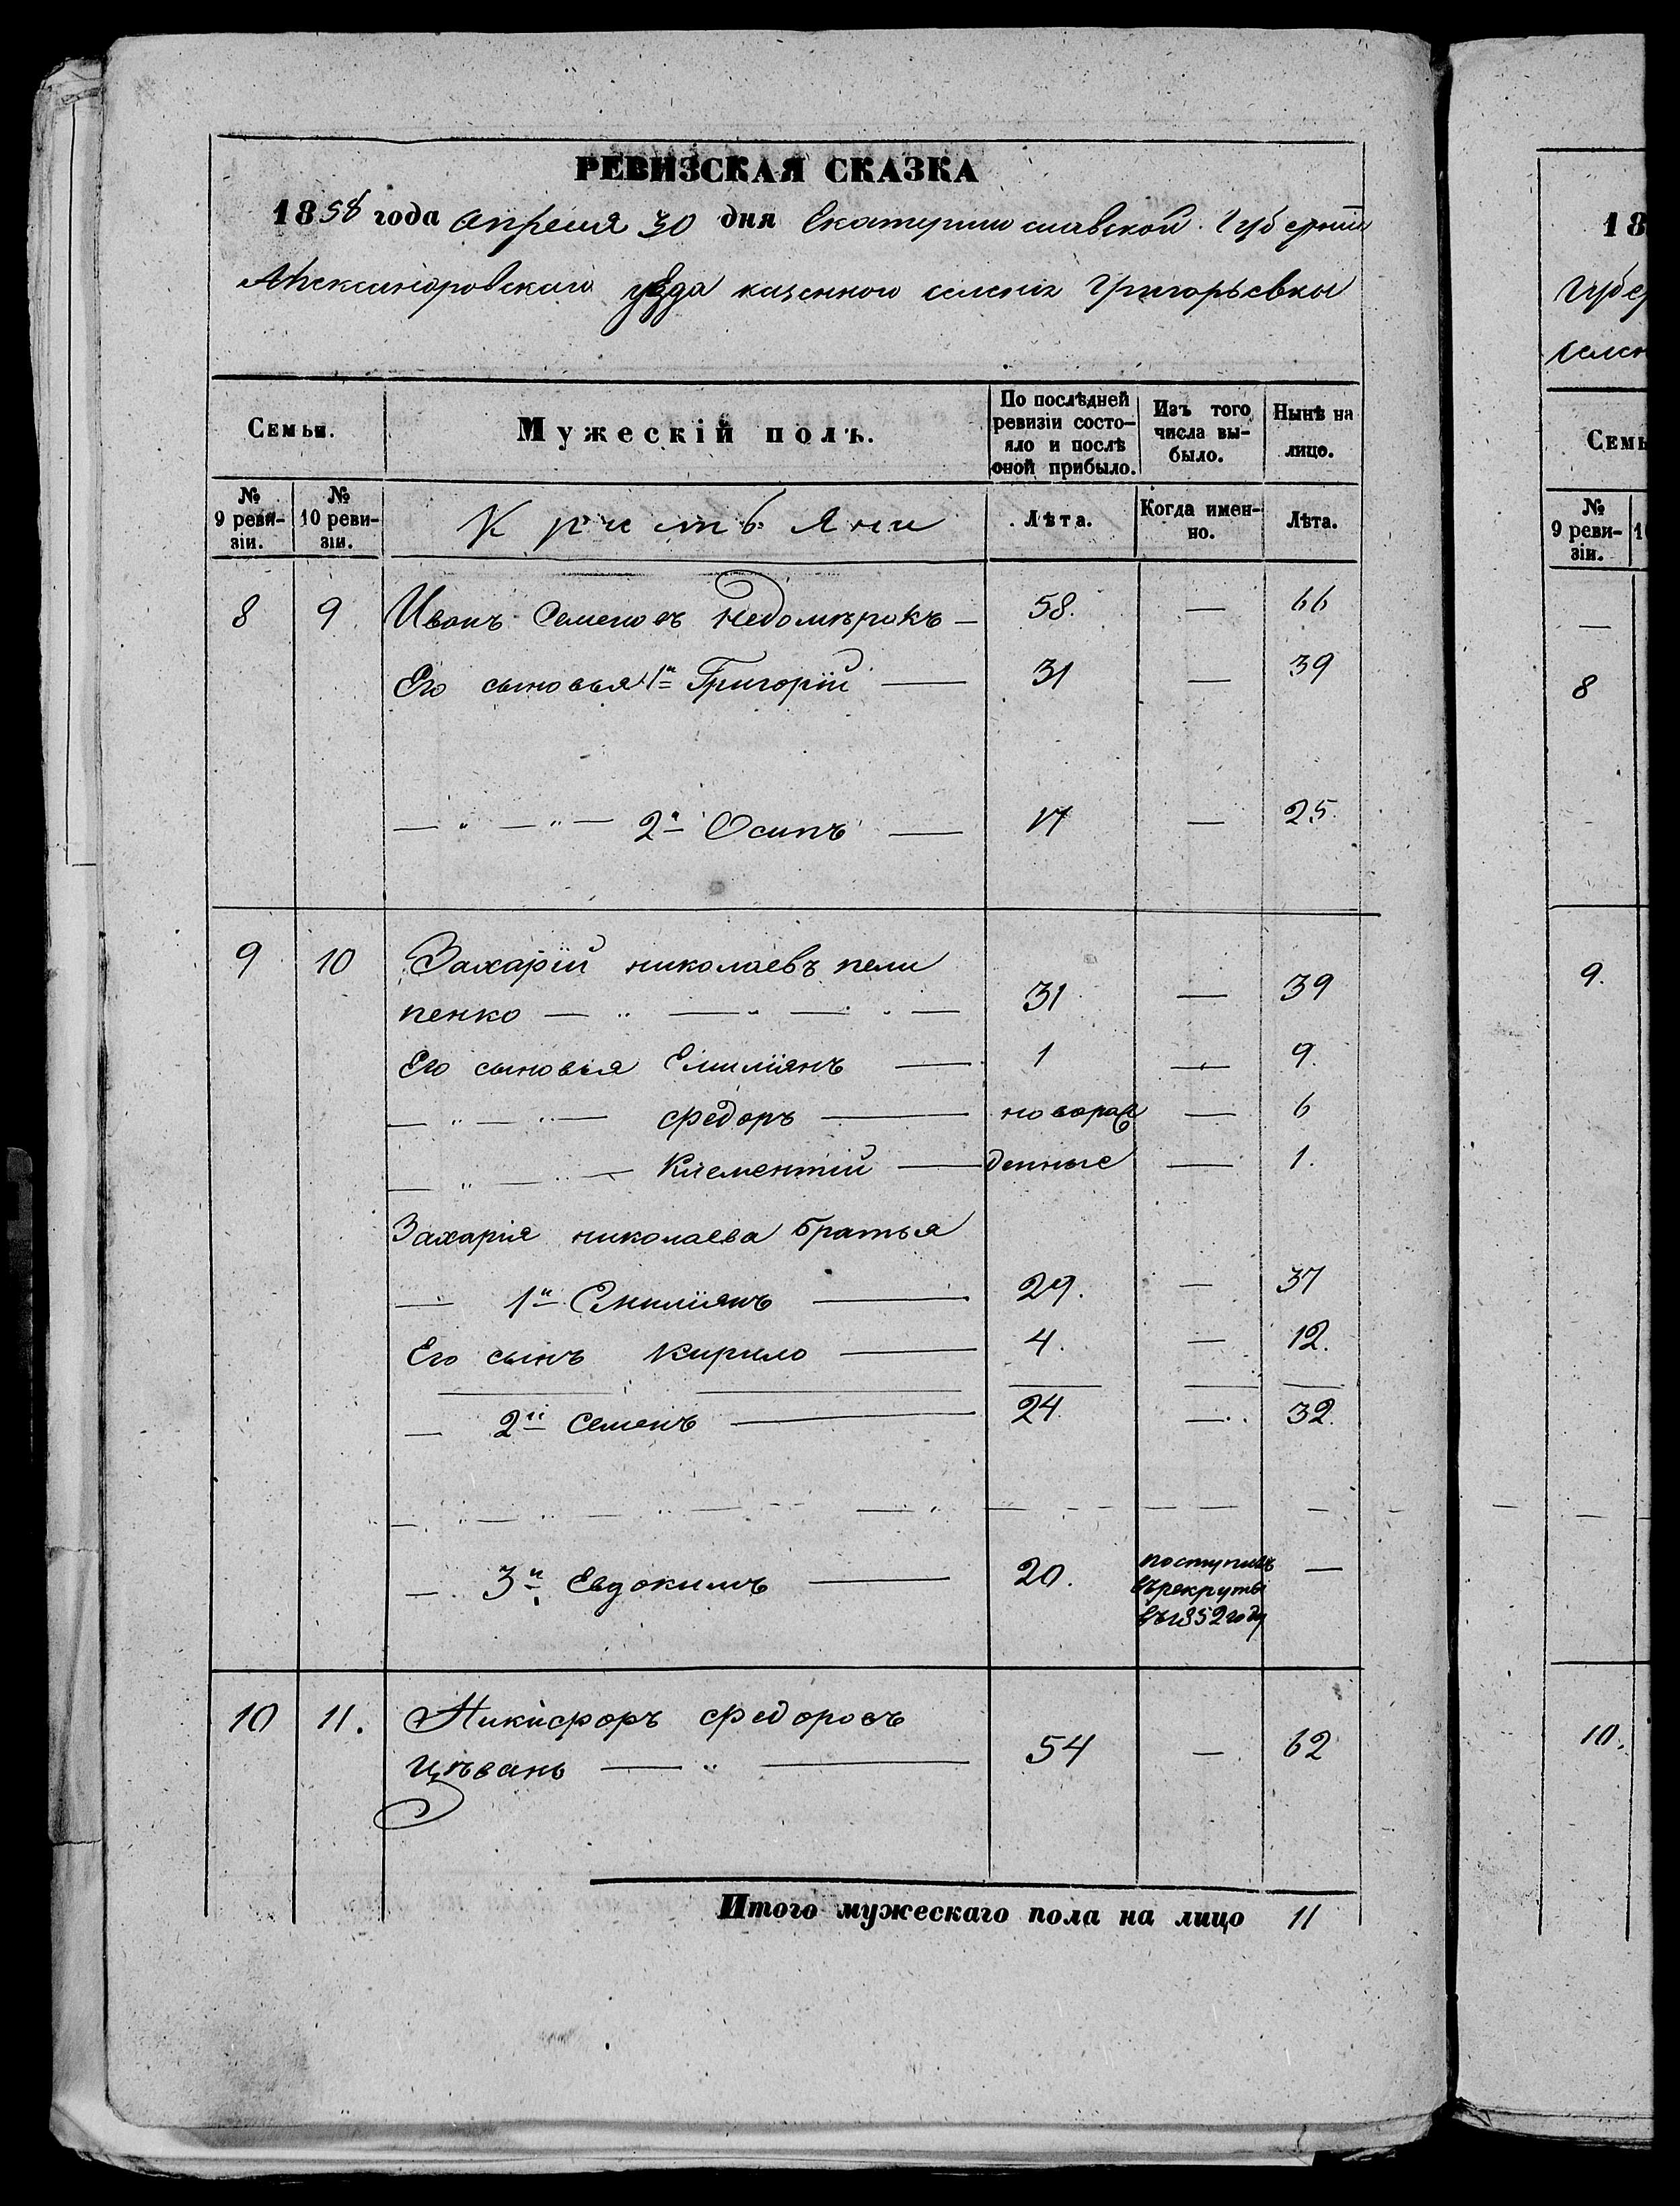 РЕВИЗСКАЯ СКАЗКА
1858 года апреля 30 дня Екатеринославской Губернии
Александровскаго уезда казенного селения Григорьевки
Семьи. Мужескій полъ. По послѣдней ревизіи состо- яло и послѣ оной прибыло. Изъ того числа вы- было. Нынѣ на лицо.
№ 9 реви- зіи. № 10 реви- зіи. Кристьяни Лѣта. Когда имен- но. Лѣта.
8 9 Иванъ Семеновъ Недомѣрокъ — 58. — 66
Его сыновья 1й Григорій — 31 — 39
— „ — „ — 2й Осипъ — 17 — 25.
9 10 Захарій николаевъ пели
пенко — „ — „ — „ — 31 — 39
Его сыновья Емиліянъ — 1 — 9.
— „ — „ — Федоръ — новораж — 6
— „ — „ — Климентій — денные — 1.
Захарія николаева братья
— 1й Емиліянъ — 29. — 37
Его сынъ Кирило — 4. — 12.
— 2й Семенъ — 24. — 32.
— 3й Евдокимъ — 20. поступилъ —
въ рекруты
въ 1852 году
10 11. Никифоръ Федоровъ
Цѣвань — „ — 54 — 62
Итого мужескаго пола на лицо 11
18
Губер
селен
Семь
№
9 реви-
зіи.
1
—
8
9.
10.